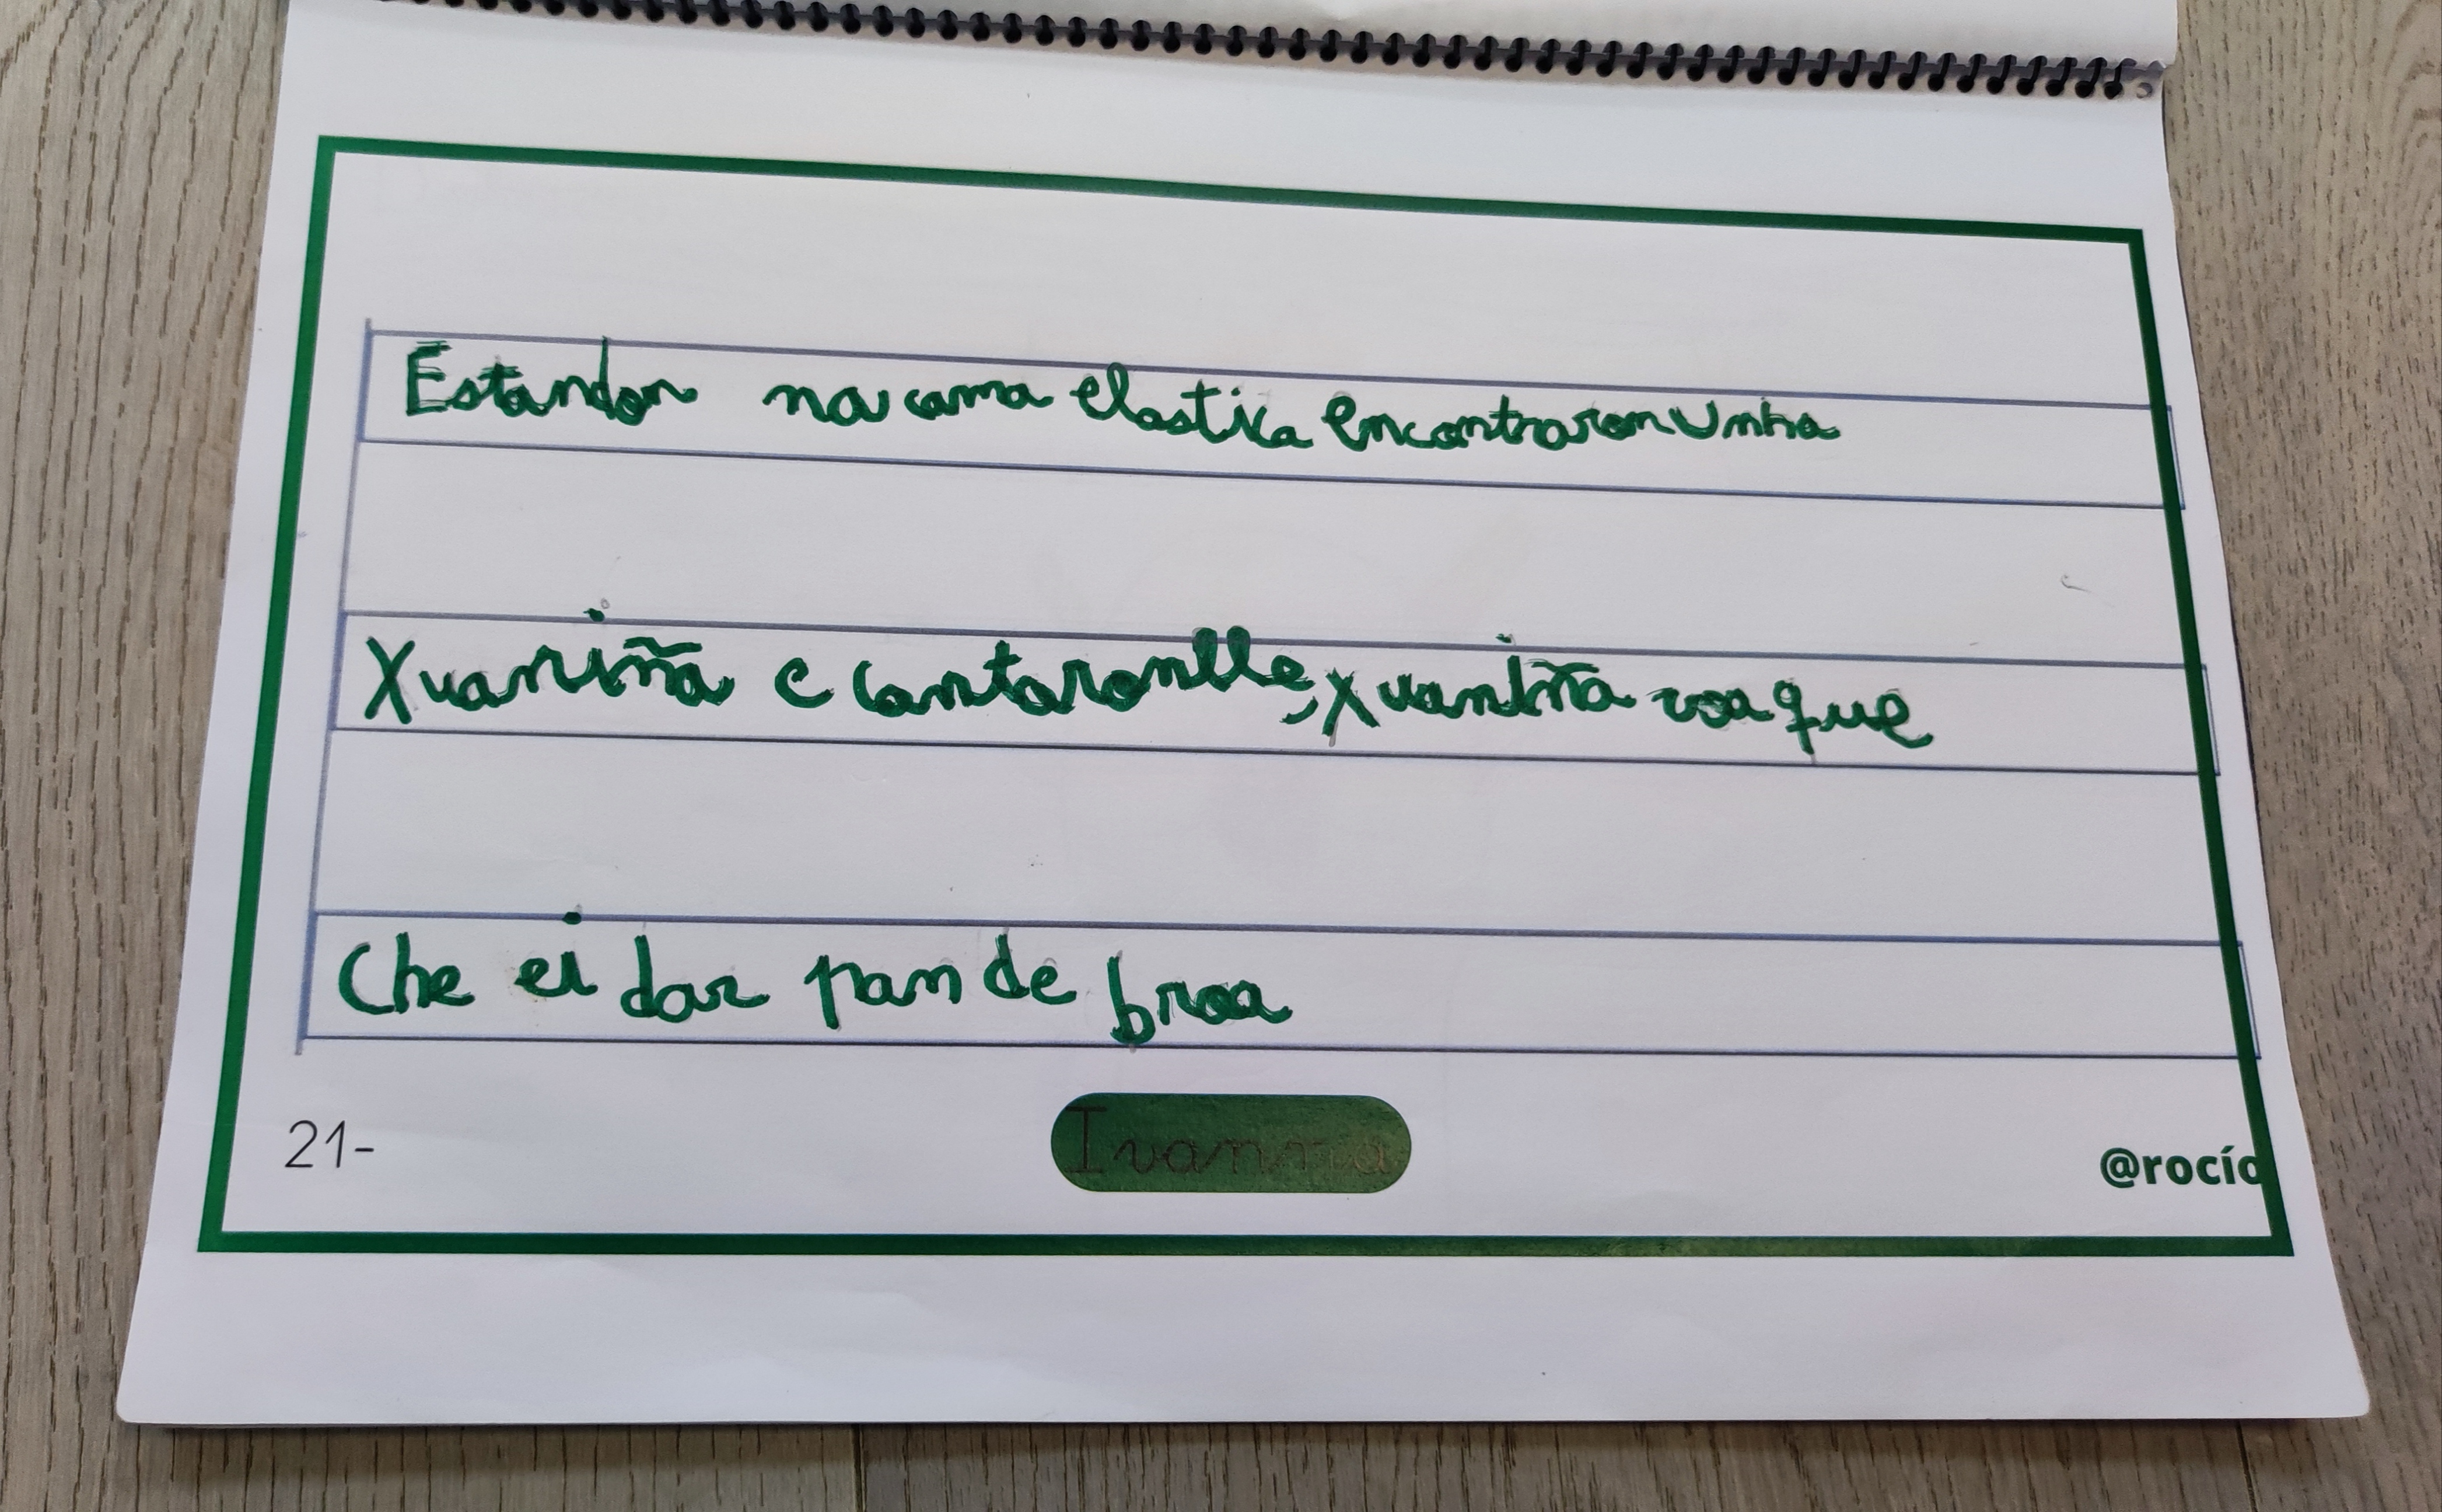 Estandon na cama elastica encontraron unha
Xuaniña e cantaronlle, xuaniña voa que
Che ei dar pan de broa
21-
Ivanna
@rocío